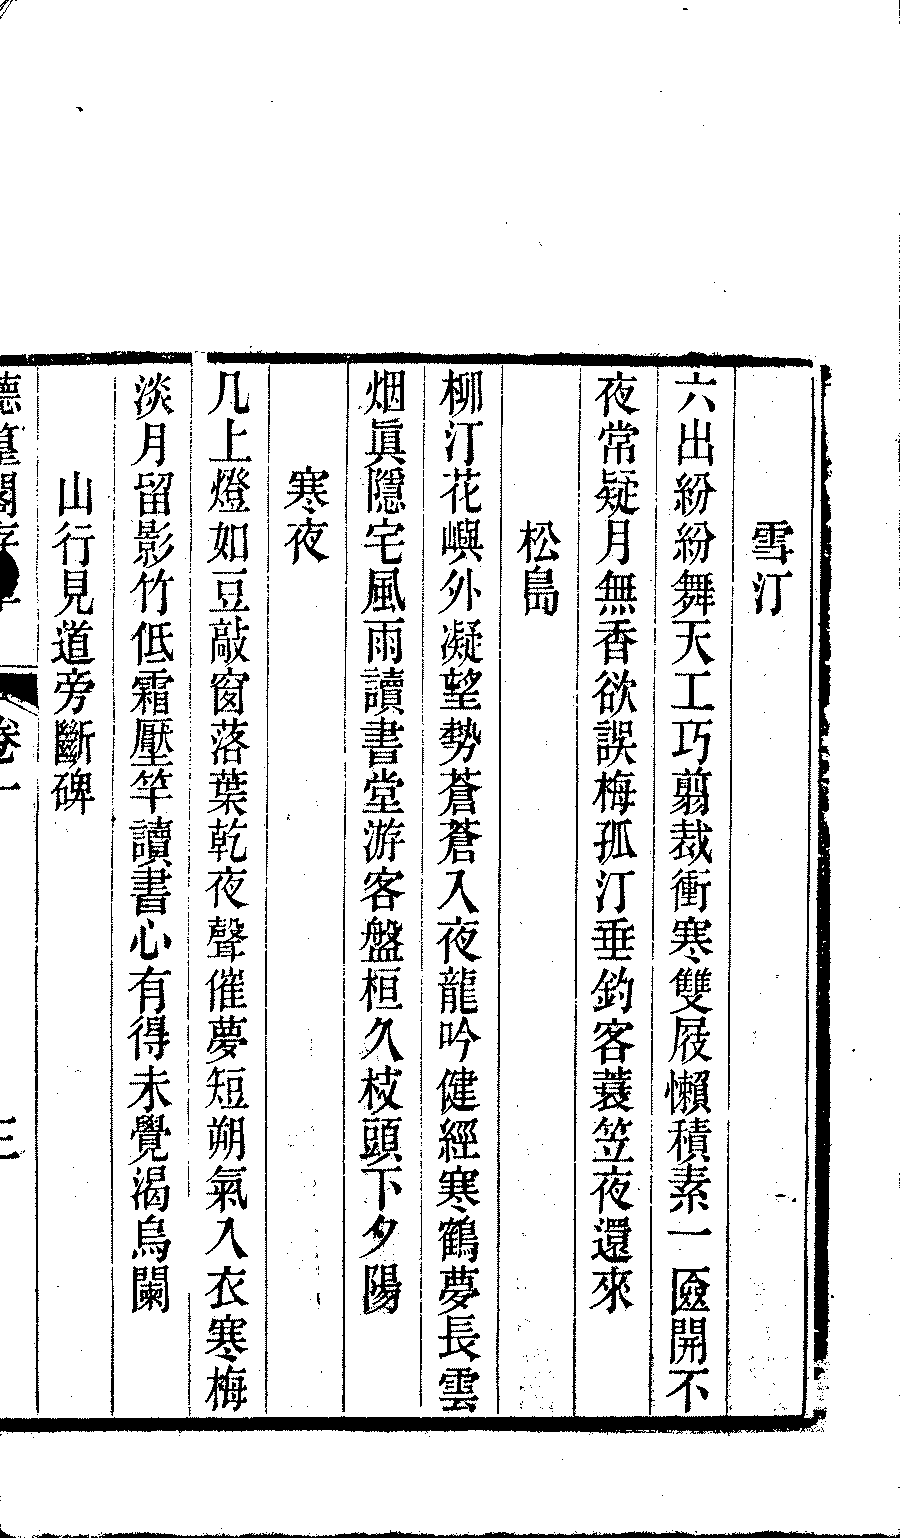 雪汀
六出紛紛舞天工巧翦裁衝寒雙屐懶積素一匳開不
夜常疑月無香欲誤梅孤汀垂釣客蓑笠夜還來
松島
柳汀花嶼外凝望勢蒼蒼入夜龍吟健經寒鶴夢長雲
烟眞隱宅風雨讀書堂游客盤桓久枝頭下夕陽
寒夜
几上燈如豆敲窗落葉乾夜聲催夢短朔氣入衣寒梅
淡月留影竹低霜壓竿讀書心有得未覺漏烏闌
山行見道旁斷碑
卷一
三